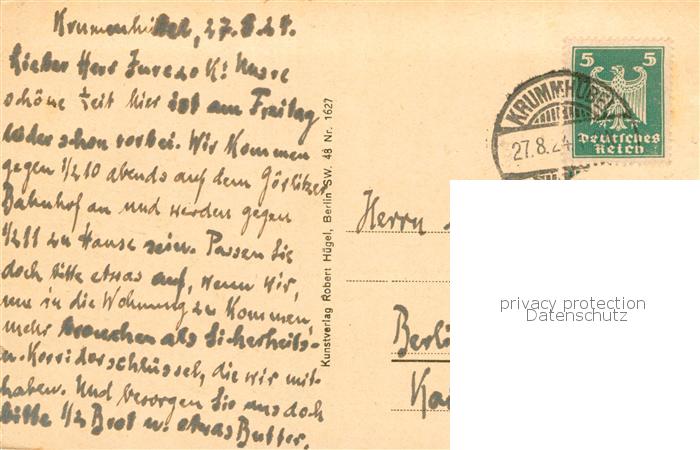 Krummhübel, 27.8.24.
Lieber Herr K! Unsre
schöne Zeit hier ist am Freitag
leider schon vorbei. Wir kommen
gegen 1/2 10 abends auf dem Görlitzer
Bahnhof an und werden gegen
1/2 11 zu Hause sein. Passen Sie
doch bitte etwas auf, wenn wir,
um in die Wohnung zu kommen,
mehr brauchen als Sicherheits-
u. Korridorschlüssel, die wir mit-
haben. Und besorgen Sie uns doch
bitte 1/2 Brot u. etwas Butter.
Kunstverlag Robert Hügel, Berlin SW. 48 Nr. 1627
5 5
Deutsches
Reich
KRUMMHÜBEL
27.8.24
Herrn
Berlin
privacy protection
Datenschutz